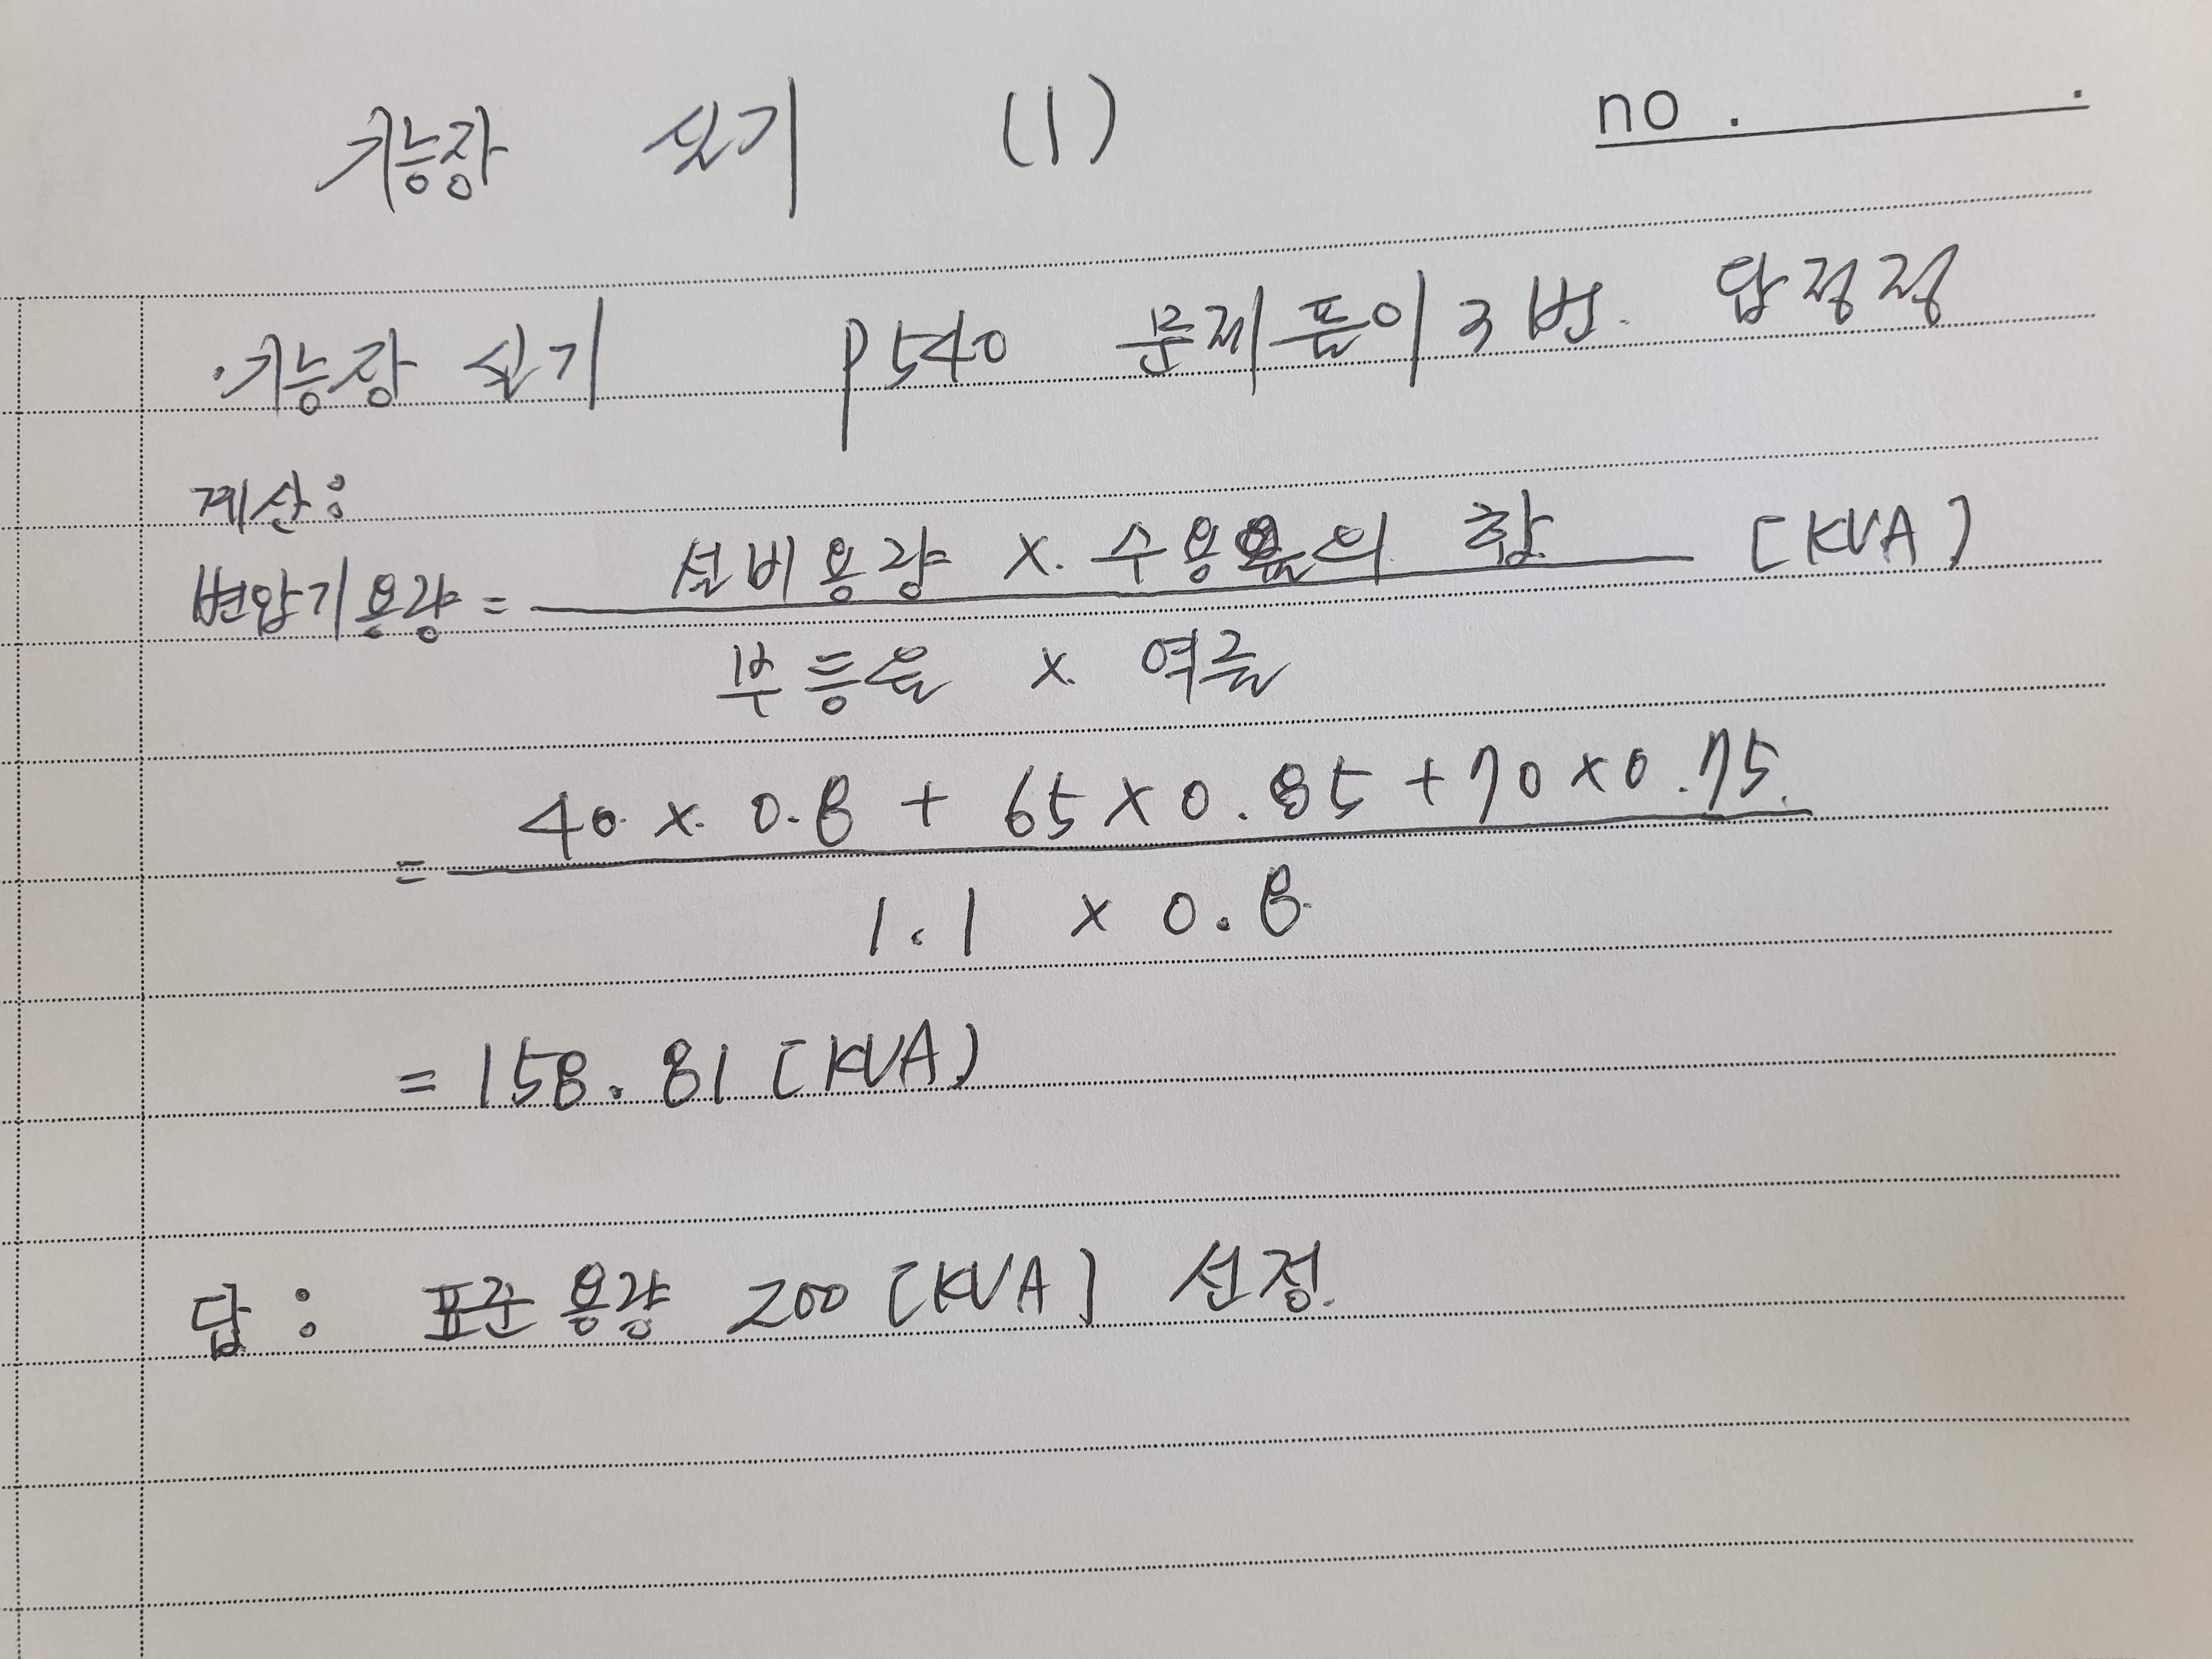 기능장 실기 (1)
no .
· 기능장 실기 P540 문제풀이 3번. 답정정
계산:
변압기용량 = 설비용량 × 수용율의 합 [KVA]
부등율 × 역률
= 40 × 0.8 + 65 × 0.85 + 70 × 0.75
1.1 × 0.8
= 158.81 [KVA]
답 : 표준용량 200 [KVA] 선정.